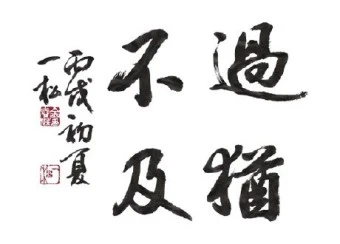 過猶
不及
丙戌初夏
一松